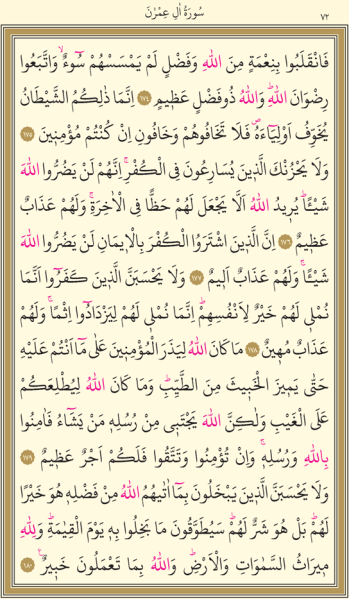 سُورَةُ اٰلِ عِمْرٰنَ ٧٢
فَانْقَلَبُوا بِنِعْمَةٍ مِنَ اللّٰهِ وَفَضْلٍ لَمْ يَمْسَسْهُمْ سُٓوءٌۙ وَاتَّبَعُوا
رِضْوَانَ اللّٰهِۜ وَاللّٰهُ ذُو فَضْلٍ عَظٖيمٍ ﴿١٧٤﴾ اِنَّمَا ذٰلِكُمُ الشَّيْطَانُ
يُخَوِّفُ اَوْلِيَٓاءَهُۖ فَلَا تَخَافُوهُمْ وَخَافُونِ اِنْ كُنْتُمْ مُؤْمِنٖينَ ﴿١٧٥﴾
وَلَا يَحْزُنْكَ الَّذٖينَ يُسَارِعُونَ فِي الْكُفْرِۚ اِنَّهُمْ لَنْ يَضُرُّوا اللّٰهَ
شَيْـًٔاۜ يُرٖيدُ اللّٰهُ اَلَّا يَجْعَلَ لَهُمْ حَظًّا فِي الْاٰخِرَةِۚ وَلَهُمْ عَذَابٌ
عَظٖيمٌ ﴿١٧٦﴾ اِنَّ الَّذٖينَ اشْتَرَوُا الْكُفْرَ بِالْاٖيمَانِ لَنْ يَضُرُّوا اللّٰهَ
شَيْـًٔاۚ وَلَهُمْ عَذَابٌ اَلٖيمٌ ﴿١٧٧﴾ وَلَا يَحْسَبَنَّ الَّذٖينَ كَفَرُٓوا اَنَّمَا
نُمْلٖي لَهُمْ خَيْرٌ لِاَنْفُسِهِمْۜ اِنَّمَا نُمْلٖي لَهُمْ لِيَزْدَادُٓوا اِثْمًاۚ وَلَهُمْ
عَذَابٌ مُهٖينٌ ﴿١٧٨﴾ مَا كَانَ اللّٰهُ لِيَذَرَ الْمُؤْمِنٖينَ عَلٰى مَٓا اَنْتُمْ عَلَيْهِ
حَتّٰى يَمٖيزَ الْخَبٖيثَ مِنَ الطَّيِّبِۜ وَمَا كَانَ اللّٰهُ لِيُطْلِعَكُمْ
عَلَى الْغَيْبِ وَلٰكِنَّ اللّٰهَ يَجْتَبٖي مِنْ رُسُلِهٖ مَنْ يَشَٓاءُ فَاٰمِنُوا
بِاللّٰهِ وَرُسُلِهٖۚ وَاِنْ تُؤْمِنُوا وَتَتَّقُوا فَلَكُمْ اَجْرٌ عَظٖيمٌ ﴿١٧٩﴾
وَلَا يَحْسَبَنَّ الَّذٖينَ يَبْخَلُونَ بِمَٓا اٰتٰيهُمُ اللّٰهُ مِنْ فَضْلِهٖ هُوَ خَيْرًا
لَهُمْۜ بَلْ هُوَ شَرٌّ لَهُمْۜ سَيُطَوَّقُونَ مَا بَخِلُوا بِهٖ يَوْمَ الْقِيٰمَةِۜ وَلِلّٰهِ
مٖيرَاثُ السَّمٰوَاتِ وَالْاَرْضِۜ وَاللّٰهُ بِمَا تَعْمَلُونَ خَبٖيرٌࣖ ﴿١٨٠﴾